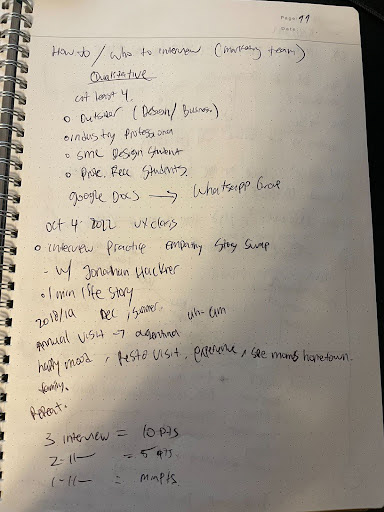 Page: 99
Date:
How to / who to interview (marketing team)
Qualitative
at least 4.
o Outsider (Design/ Business)
o industry professional
o SME Design Student
o Prof. Rec Students.
google Docs → Whatsapp Group
Oct 4 - 2022 UX class
o interview Practice empathy Story Swap
- w/ Jonathan Hackner
o 1 min life story
2018/19 Dec, summer. uh-um
Annual visit → argentina
happy mood, Resto visit, experience, see moms hometown.
family.
Repeat.
3 interview = 10 pts
2 -11- = 5 pts
1 -11- = min pts